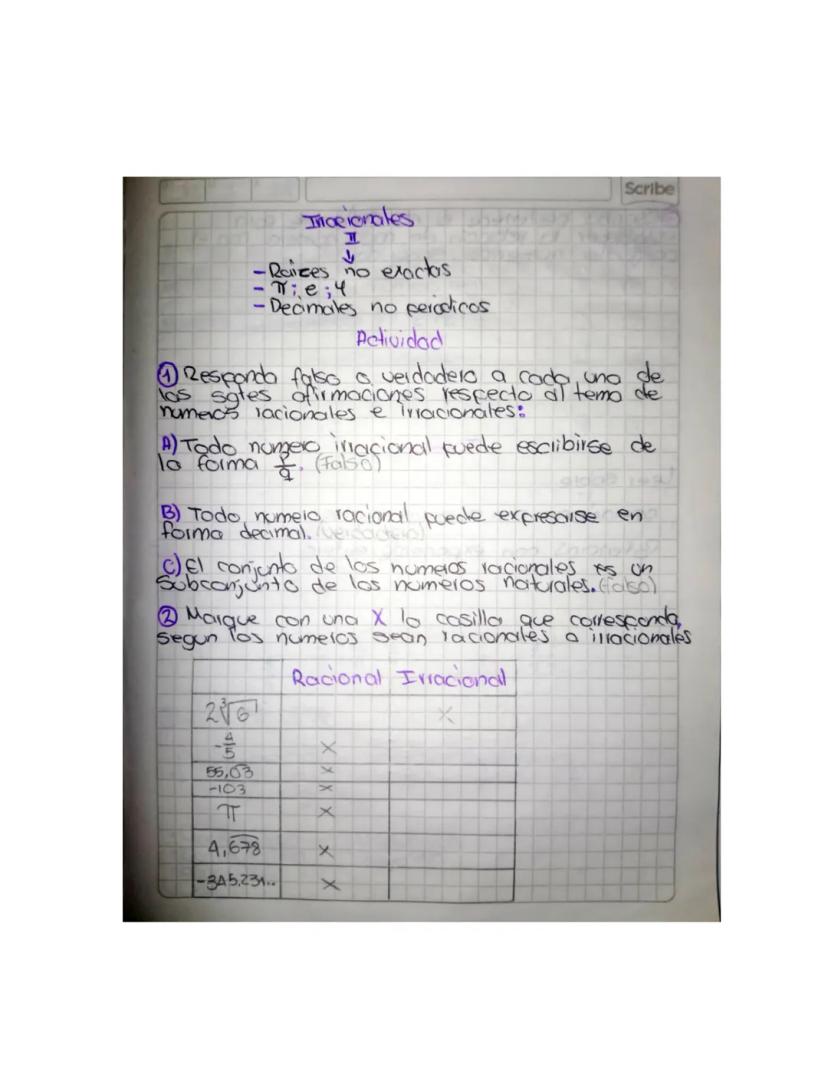 Scribe
Irracionales
II
- Raíces no exactas
- π; e; φ
- Decimales no periodicos
Actividad
① Responda falso o verdadero a cada una de
las sgtes afirmaciones respecto al tema de
numeros racionales e irracionales:
A) Todo numero irracional puede escribirse de
la forma p/q. (Falso)
B) Todo numero racional puede expresarse en
forma decimal. (Verdadero)
C) El conjunto de los numeros racionales es un
subconjunto de los numeros naturales. (falso)
② Marque con una X la casilla que corresponda,
segun los numeros sean racionales o irracionales
Racional Irracional
2∛6 X
-4/5 X
55,03 X
-103 X
π X
4,6͞7͞8 X
-345,231... X